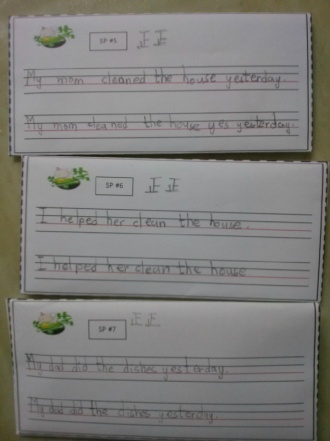 SP #5 正正
My mom cleaned the house yesterday.
My mom cleaned the house yes yesterday.
SP #6 正正
I helped her clean the house.
I helped her clean the house
SP #7 正正
My dad did the dishes yesterday.
My dad did the dishes yesterday.